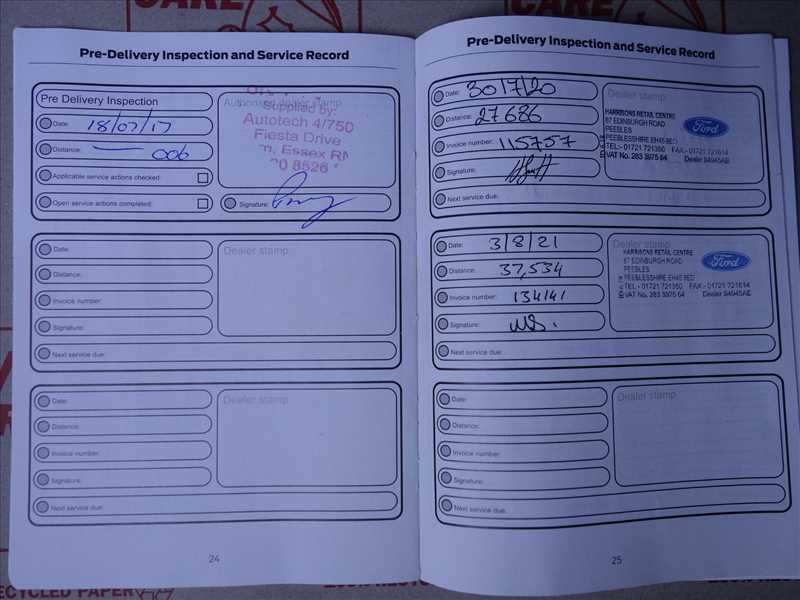 CARE
CARE
Pre-Delivery Inspection and Service Record
Pre Delivery Inspection
Date: 18/07/17
Distance: 006
Applicable service actions checked:
Open service actions completed:
Authorised dealer stamp
Supplied by:
Autotech 4/750
Fiesta Drive
Essex
8526
Signature:
Date:
Distance:
Invoice number:
Signature:
Next service due:
Dealer stamp
Date:
Distance:
Invoice number:
Signature:
Next service due:
Dealer stamp
24
Pre-Delivery Inspection and Service Record
Date: 30/7/20
Distance: 27686
Invoice number: 115757
Signature:
Next service due:
Dealer stamp
HARRISONS RETAIL CENTRE
87 EDINBURGH ROAD
PEEBLES
PEEBLESSHIRE EH45 8ED
TEL:- 01721 721350 FAX - 01721 721614
VAT No. 283 3975 64 Dealer 94945AB
Ford
Date: 3/8/21
Distance: 37,534
Invoice number: 134141
Signature:
Next service due:
Dealer stamp
HARRISONS RETAIL CENTRE
87 EDINBURGH ROAD
PEEBLES
PEEBLESSHIRE EH45 8ED
TEL - 01721 721350 FAX - 01721 721614
VAT No. 283 3975 64 Dealer 94945AB
Ford
Date:
Distance:
Invoice number:
Signature:
Next service due:
Dealer stamp
25
RECYCLED PAPER